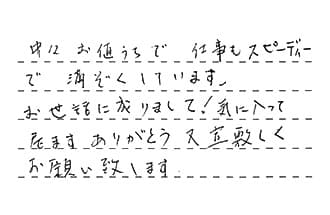 中に お値うちで 仕事もスピーディー
で 満ぞくしています。
お世話に成りまして!気に入って
居ます ありがとう 又宜敷しく
お願い致します。